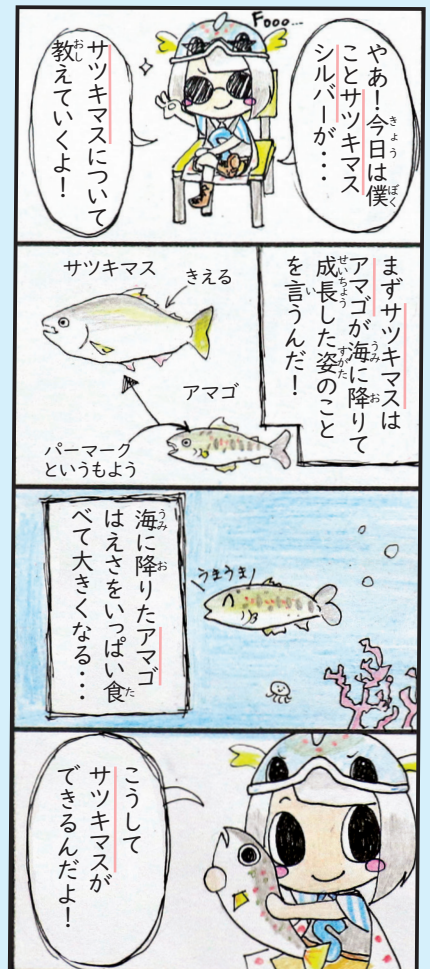 Fooo...
やあ!今日は僕
ことサツキマス
シルバーが・・・
サツキマスについて
教えていくよ!
まずサツキマスは
アマゴが海に降りて
成長した姿のこと
を言うんだ!
サツキマス
きえる
アマゴ
パーマーク
というもよう
海に降りたアマゴ
はえさをいっぱい食
べて大きくなる・・・
うまうま
こうして
サツキマスが
できるんだよ!